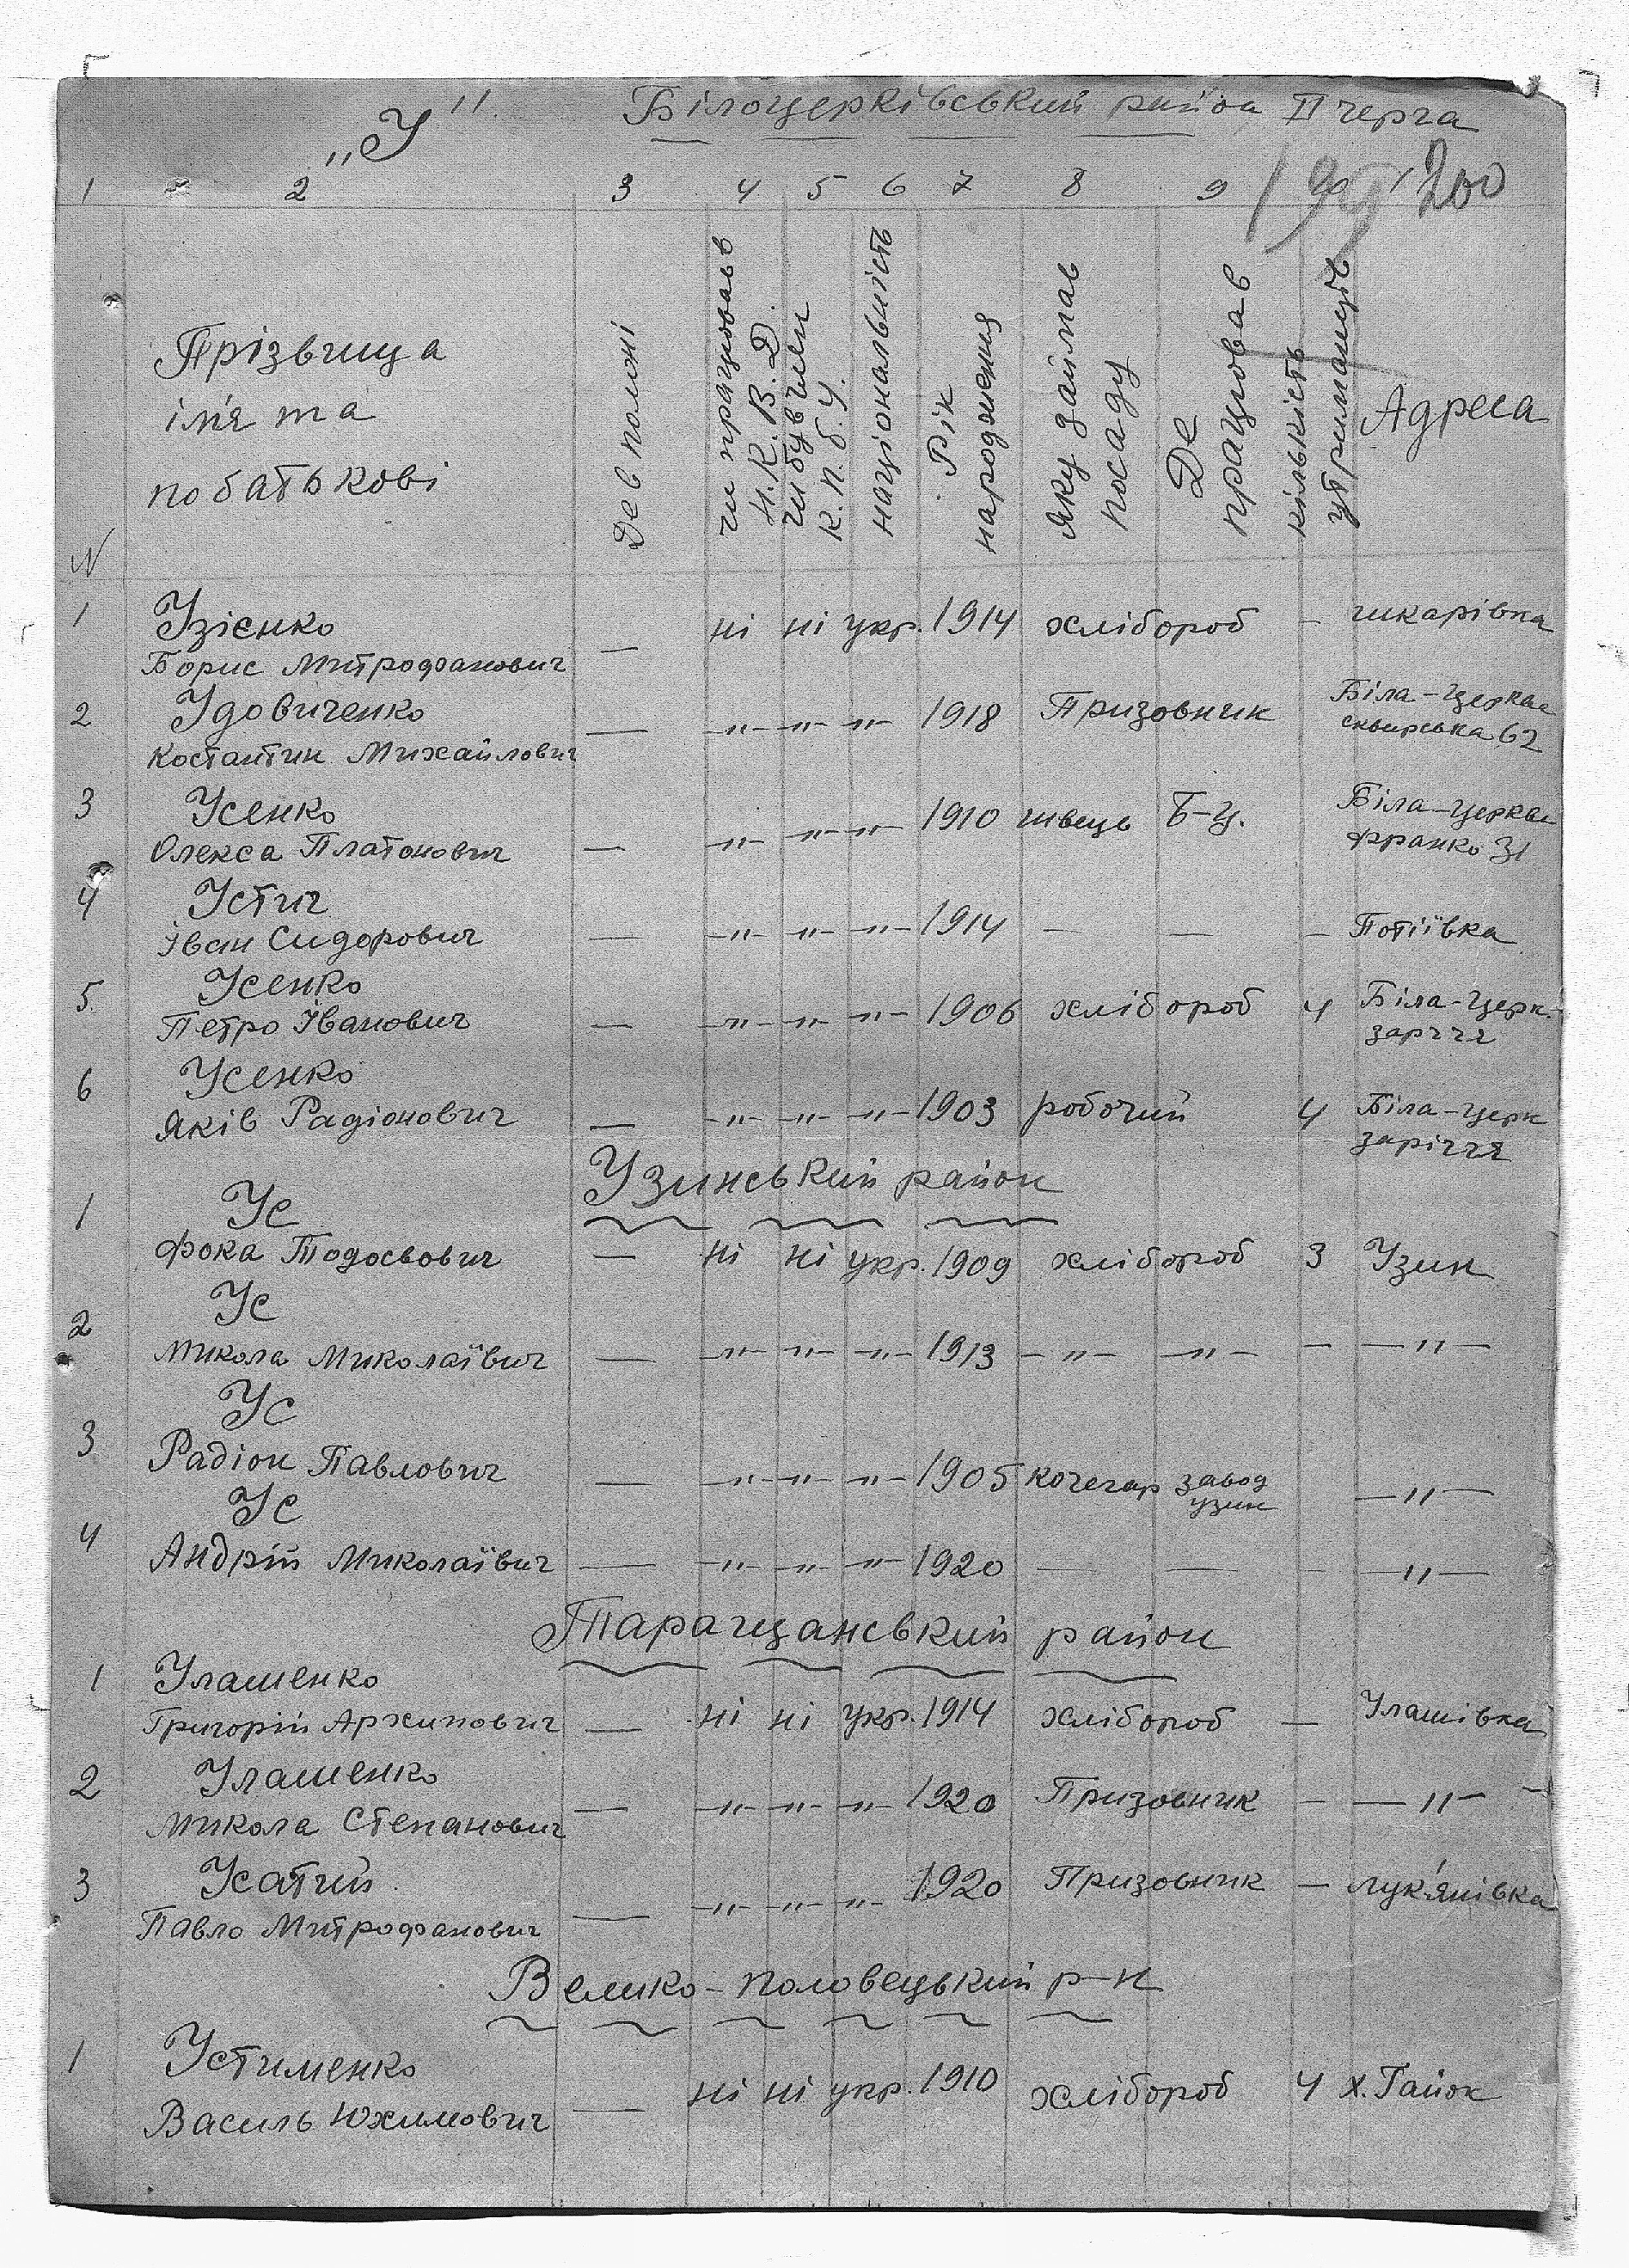 „У" Білоцерківський район II черга
200
1 2 3 4 5 6 7 8 9
N
Прізвища
ім'я та
побатькові
Де в полоні
чи працював в
Н.К.В.Д.
чи був член
К.П.б.У.
національність
Рік
народження
яку займав
посаду
Де
працював
кількість
утриманців
Адреса
1 Узієнко ні ні укр. 1914 хлібороб — шкарівка
Борис Митрофанович —
2 Удовиченко — -"- -"- -"- 1918 Призовник Біла-Церква
Костантин Михайлович сквирська 62
3 Усенко 1910 швець Б-Ц. Біла-Церква
Олекса Платонович — -"- -"- -"- Франко 31
4 Устич
Іван Сидорович — -"- -"- -"- 1914 — — — Потіївка
5 Усенко Біла-Церк.
Петро Іванович — -"- -"- -"- 1906 хлібороб 4 заріччя
6 Усенко Біла-Церк
Яків Радіонович — -"- -"- -"- 1903 робочий 4 заріччя
Узинський район
1 Ус
Фока Тодосьович — ні ні укр. 1909 хлібороб 3 Узин
2 Ус
Микола Миколаївич — -"- -"- -"- 1913 -"- -"- — -"-
3 Ус
Радіон Павлович — -"- -"- -"- 1905 кочегар завод
узин -"-
4 Ус
Андрій Миколаївич — -"- -"- -"- 1920 — — — -"-
Таращанський район
1 Улашенко
Григорій Архипович — ні ні укр. 1914 хлібороб — Улашівка
2 Улашенко
Микола Степанович — -"- -"- -"- 1920 Призовник — -"-
3 Усатий
Павло Митрофанович — -"- -"- -"- 1920 Призовник — лук'янівка
Велико-половецький р-н
1 Устименко
Василь Юхимович — ні ні укр. 1910 хлібороб 4 х. Гайок